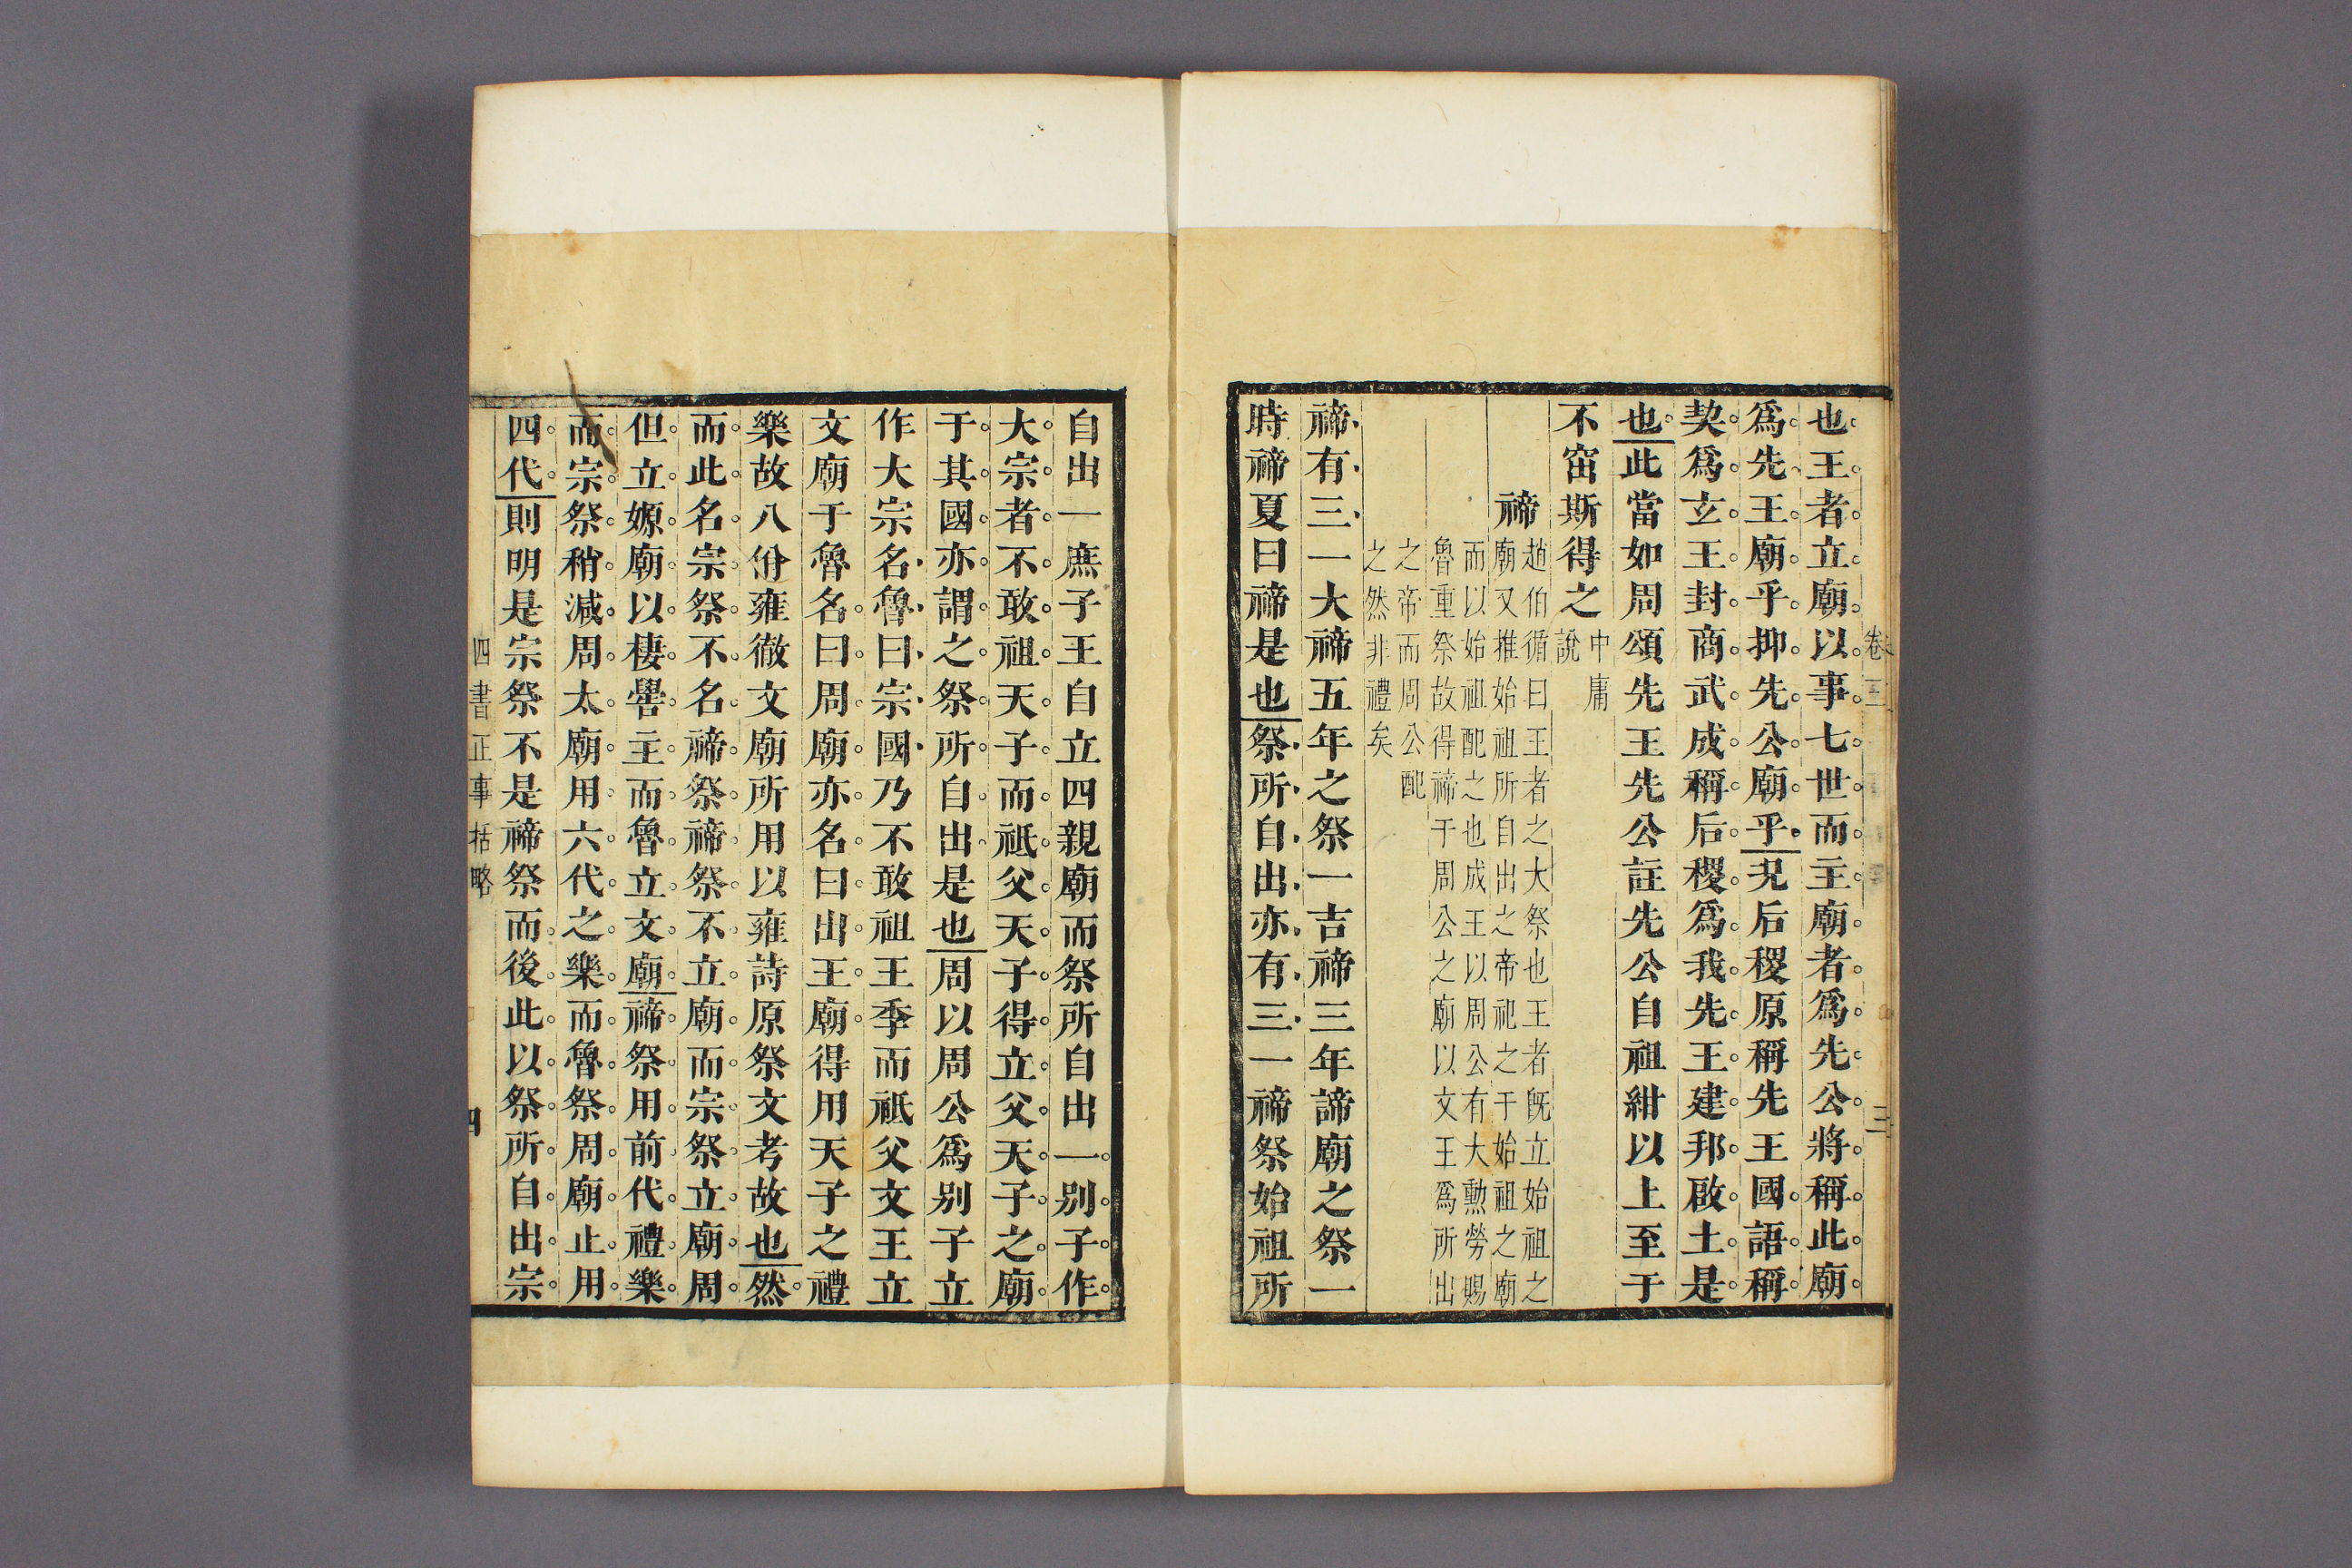 卷三
三
也王者立廟以事七世而主廟者爲先公將稱此廟
爲先王廟乎抑先公廟乎況后稷原稱先王國語稱
契爲玄王封商武成稱后稷爲我先王建邦啟土是
也此當如周頌先王先公註先公自祖紺以上至于
不窋斯得之中庸
說
禘趙伯循曰王者之大祭也王者既立始祖之
廟又推始祖所自出之帝祀之于始祖之廟
而以始祖配之也成王以周公有大勲勞賜
魯重祭故得禘于周公之廟以文王爲所出
之帝而周公配
之然非禮矣
禘有三一大禘五年之祭一吉禘三年諦廟之祭一
時禘夏曰禘是也祭所自出亦有三一禘祭始祖所
自出一庶子王自立四親廟而祭所自出一別子作
大宗者不敢祖天子而祗父天子得立父天子之廟
于其國亦謂之祭所自出是也周以周公爲別子立
作大宗名魯曰宗國乃不敢祖王季而祗父文王立
文廟于魯名曰周廟亦名曰出王廟得用天子之禮
樂故八佾雍徹文廟所用以雍詩原祭文考故也然
而此名宗祭不名禘祭禘祭不立廟而宗祭立廟周
但立嫄廟以棲嚳主而魯立文廟禘祭用前代禮樂
而宗祭稍減周太廟用六代之樂而魯祭周廟止用
四代則明是宗祭不是禘祭而後此以祭所自出宗
四書正事括略
四